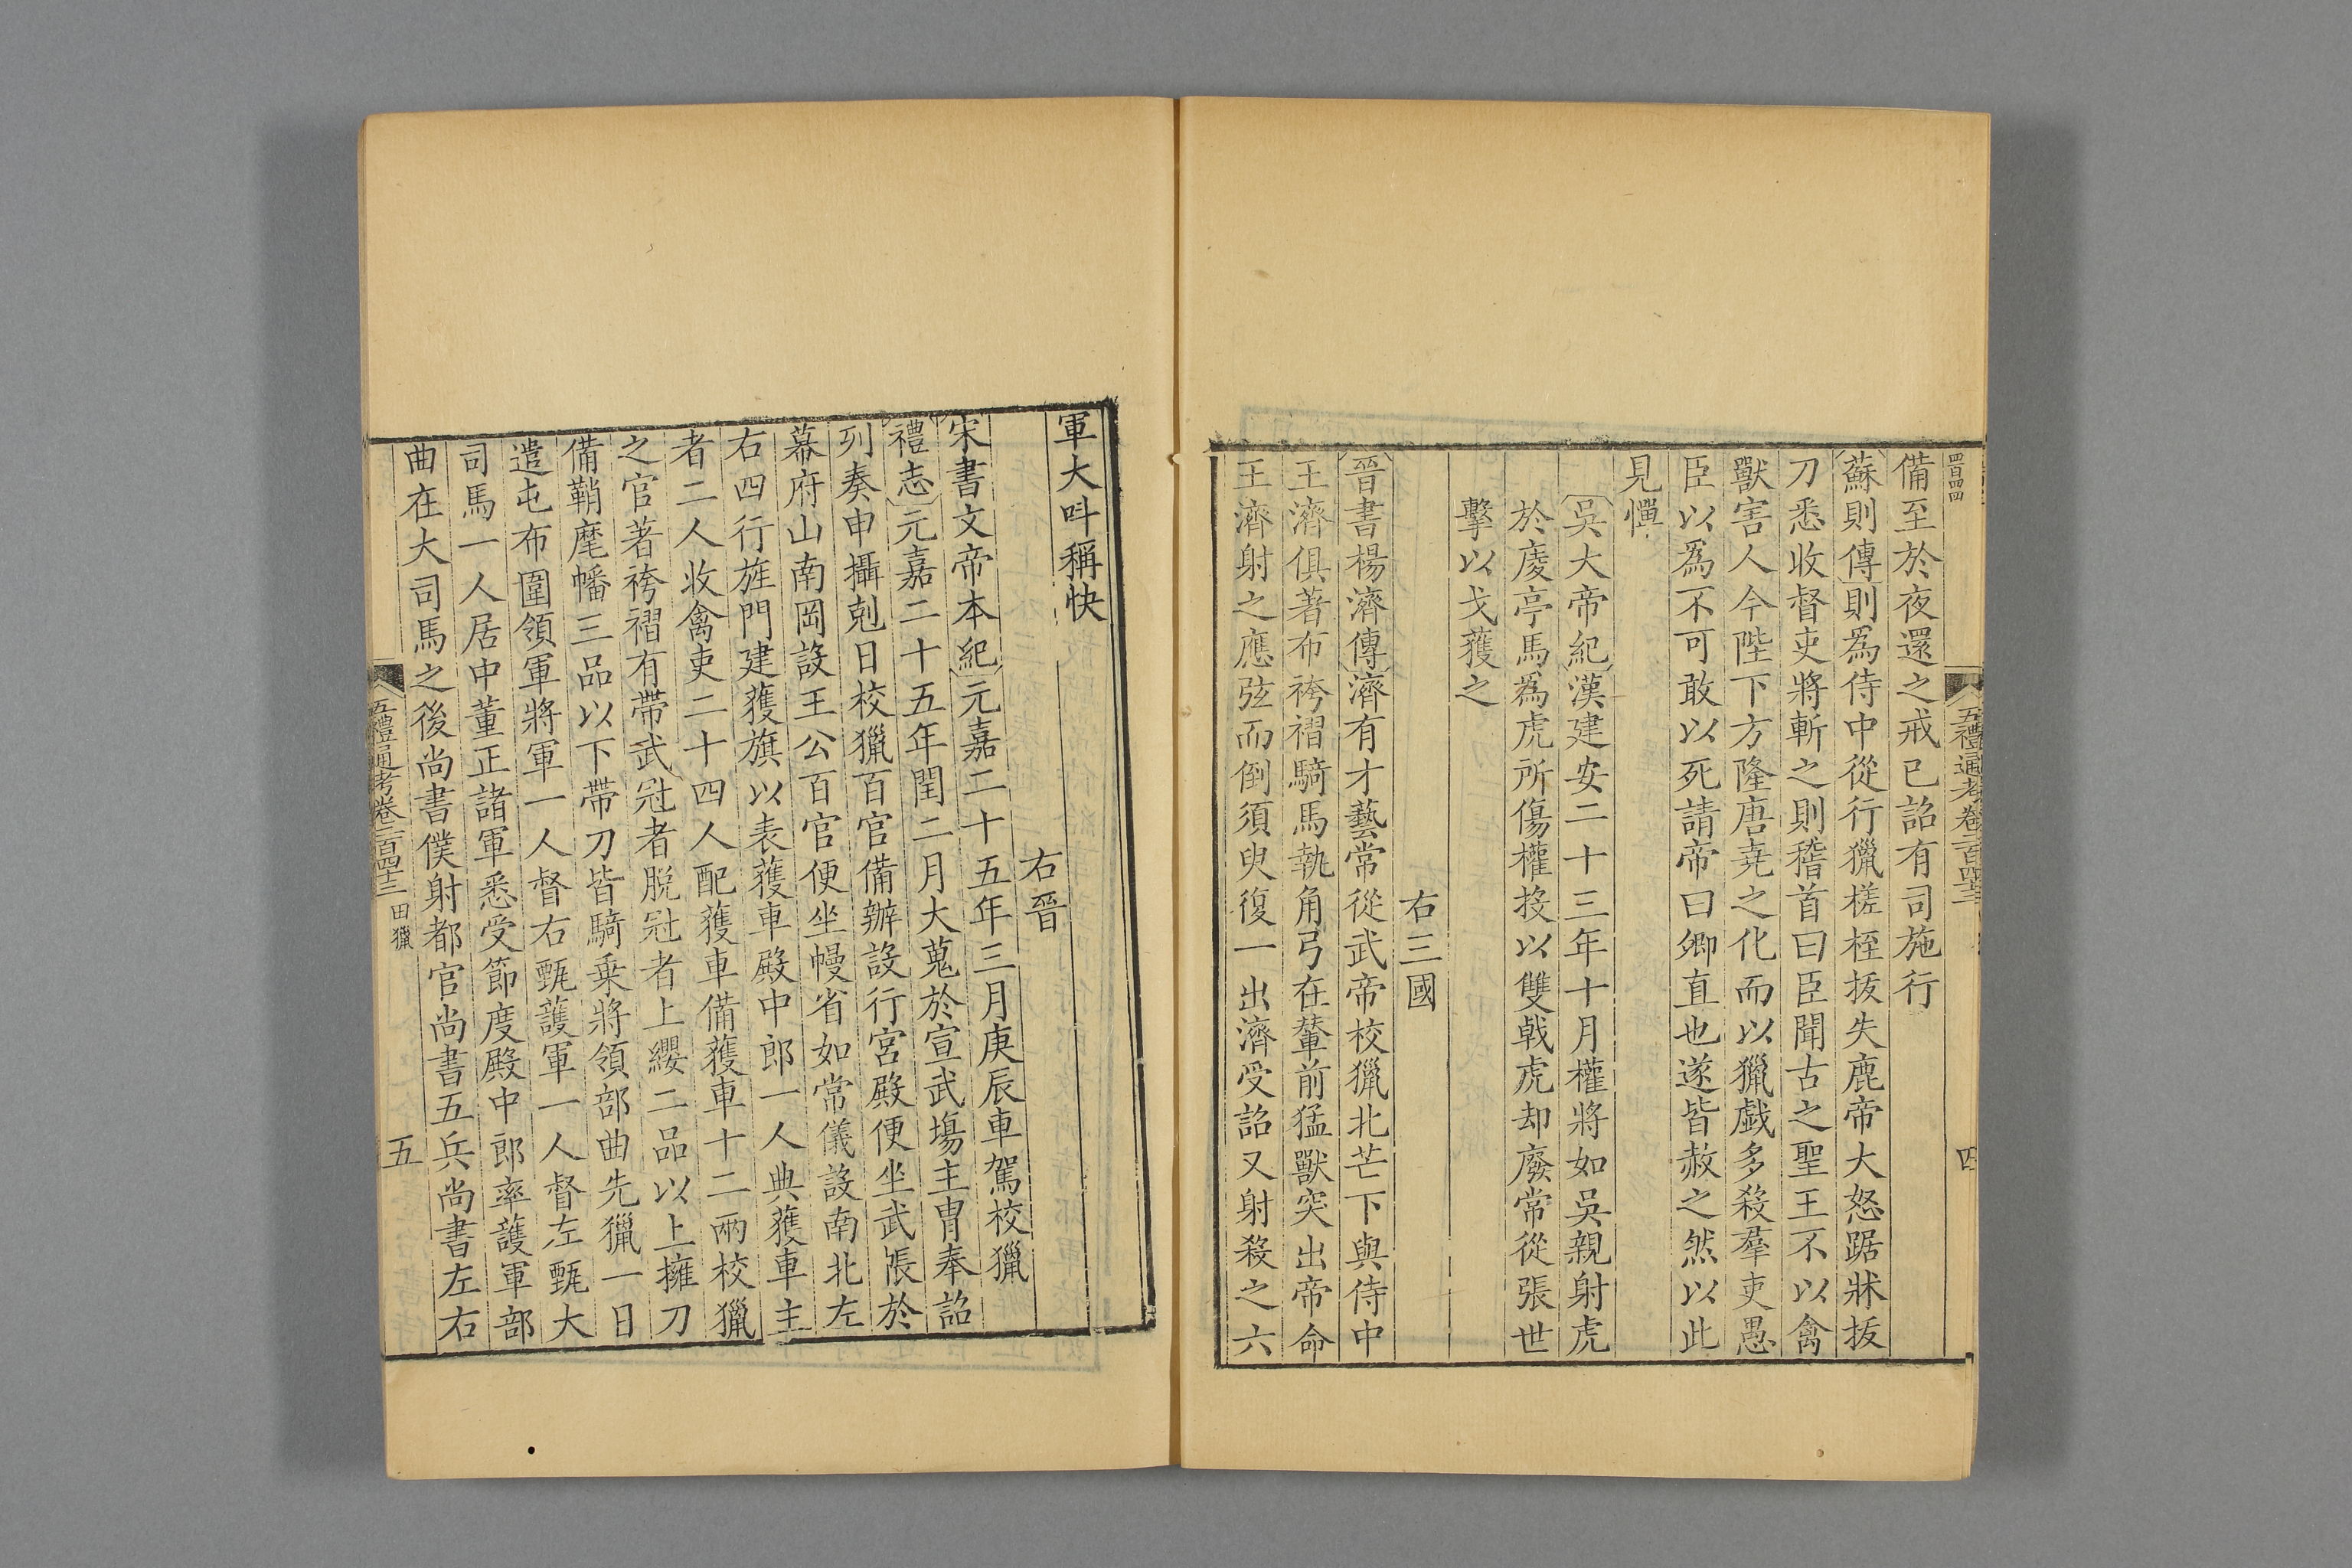 四百四四
五禮通考卷二百四十三
四
備至於夜還之戒已詔有司施行
蘇則傳則爲侍中從行獵槎桎拔失鹿帝大怒踞牀拔
刀悉收督吏將斬之則稽首曰臣聞古之聖王不以禽
獸害人今陛下方隆唐堯之化而以獵戲多殺羣吏愚
臣以爲不可敢以死請帝曰卿直也遂皆赦之然以此
見憚
吳大帝紀漢建安二十三年十月權將如吳親射虎
於庱亭馬爲虎所傷權投以雙戟虎却廢常從張世
擊以戈獲之
右三國
晉書楊濟傳濟有才藝常從武帝校獵北芒下與侍中
王濟俱著布袴褶騎馬執角弓在輦前猛獸突出帝命
王濟射之應弦而倒須臾復一出濟受詔又射殺之六
軍大呌稱快
右晉
宋書文帝本紀元嘉二十五年三月庚辰車駕校獵
禮志元嘉二十五年閏二月大蒐於宣武場主胄奉詔
列奏申攝剋日校獵百官備辦設行宮殿便坐武帳於
幕府山南岡設王公百官便坐幔省如常儀設南北左
右四行旌門建獲旗以表獲車殿中郎一人典獲車主
者二人收禽吏二十四人配獲車備獲車十二兩校獵
之官著袴褶有帶武冠者脫冠者上纓二品以上擁刀
備鞘麾幡三品以下帶刀皆騎乗將領部曲先獵一日
遣屯布圍領軍將軍一人督右甄護軍一人督左甄大
司馬一人居中董正諸軍悉受節度殿中郎率護軍部
曲在大司馬之後尚書僕射都官尚書五兵尚書左右
五禮通考卷二百四十三 田獵
五